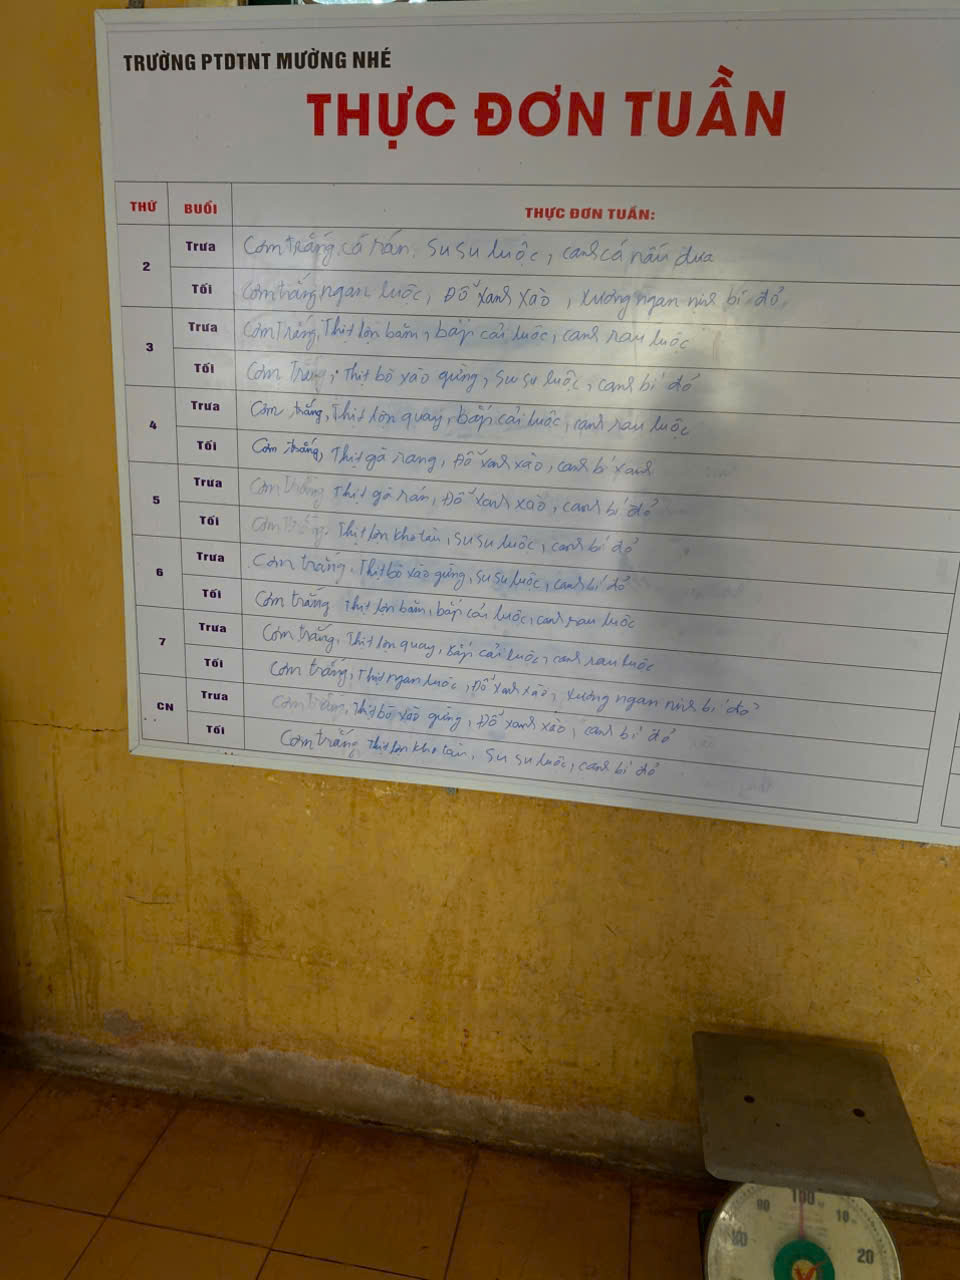 TRƯỜNG PTDTNT MƯỜNG NHÉ
THỰC ĐƠN TUẦN
THỨ BUỔI THỰC ĐƠN TUẦN:
2 Trưa Cơm trắng, cá rán, su su luộc, canh cá nấu dưa
Tối Cơm trắng ngan luộc, Đỗ xanh xào, xương ngan ninh bí đỏ,
3 Trưa Cơm Trắng, Thịt lợn băm, bắp cải luộc, canh rau luộc
Tối Cơm Trắng, Thịt bò xào gừng, Su su luộc, canh bí đỏ
4 Trưa Cơm trắng, Thịt lợn quay, bắp cải luộc, canh rau luộc
Tối Cơm trắng, Thịt gà rang, Đỗ xanh xào, canh bí xanh
5 Trưa Cơm Trắng Thịt gà rán, Đỗ xanh xào, canh bí đỏ
Tối Cơm Trắng, Thịt lợn kho tàu, su su luộc, canh bí đỏ
6 Trưa Cơm trắng, Thịt bò xào gừng, su su luộc, canh bí đỏ
Tối Cơm trắng Thịt lợn băm, bắp cải luộc, canh rau luộc
7 Trưa Cơm trắng, Thịt lợn quay, Bắp cải luộc, canh rau luộc
Tối Cơm trắng, Thịt ngan luộc, Đỗ xanh xào, xương ngan ninh bí đỏ
CN Trưa Cơm Trắng, Thịt bò xào gừng, Đỗ xanh xào, canh bí đỏ
Tối Cơm trắng Thịt lợn kho tàu, Su su luộc, canh bí đỏ
90 100 10
80 20